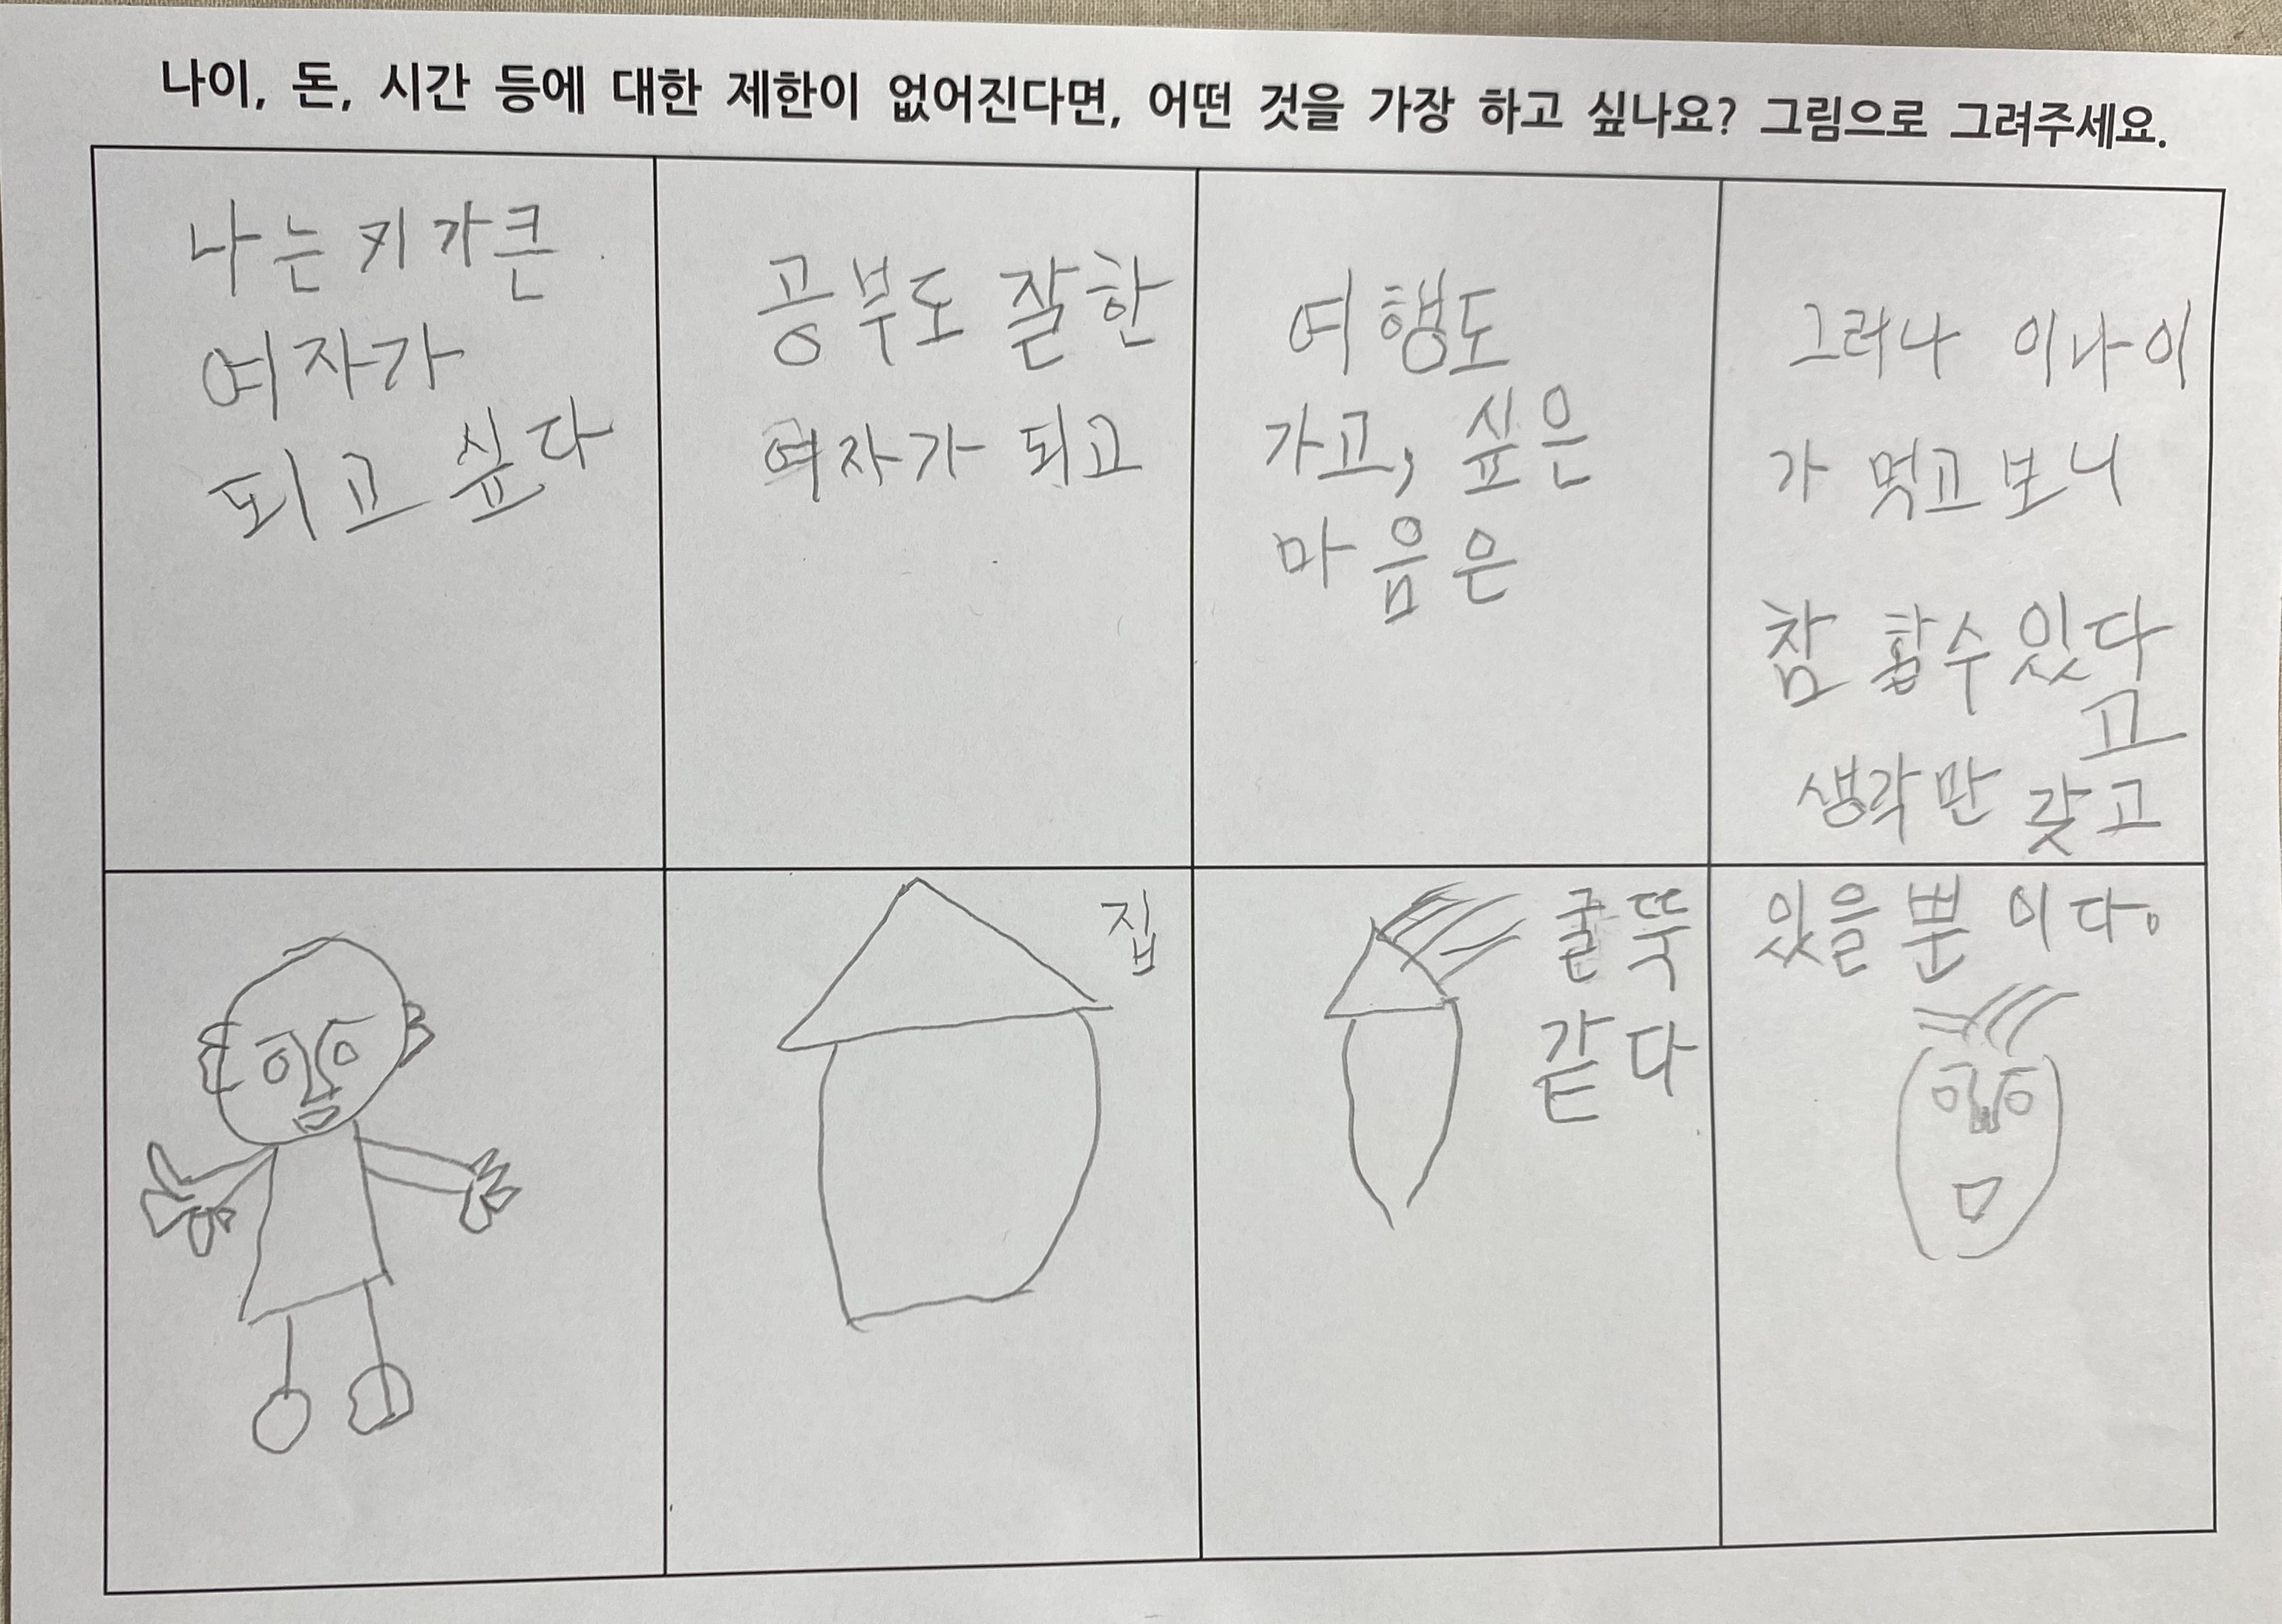 나이, 돈, 시간 등에 대한 제한이 없어진다면, 어떤 것을 가장 하고 싶나요? 그림으로 그려주세요.
나는 키가 큰
여자가
되고 싶다
공부도 잘한
여자가 되고
여행도
가고, 싶은
마음은
그러나 이나이
가 먹고보니
참 할수있다
고
생각만 갖고
집
굴뚝
같다
있을 뿐이다.